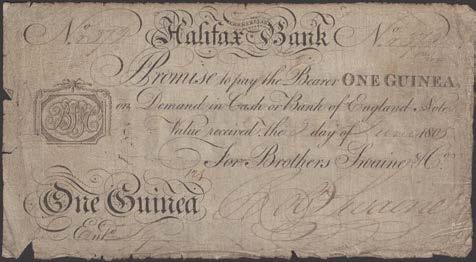 No No
Halifax Bank
I Promise to pay the Bearer ONE GUINEA
on Demand in Cash or Bank of England Note
Value received the day of 1805
For Brothers Swaine & Co.
One Guinea
Entd